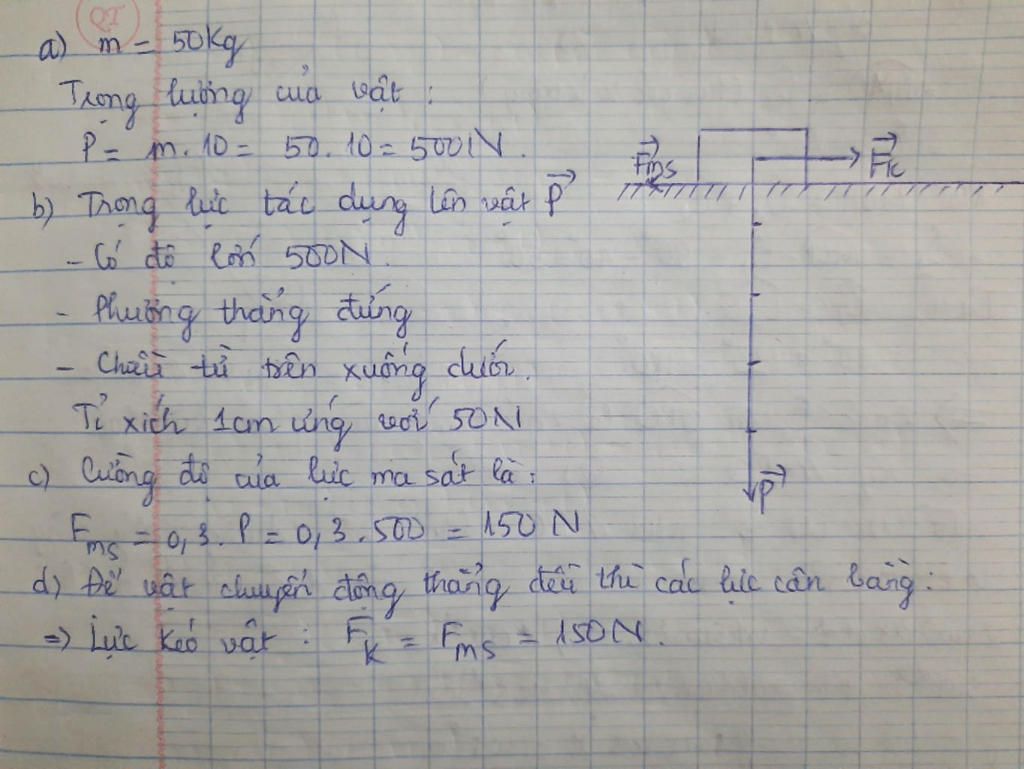 QT
a) m = 50Kg
Trọng lượng của vật :
P = m. 10 = 50. 10 = 500N.
b) Trọng lực tác dụng lên vật P
- Có độ lớn 500N.
- Phương thẳng đứng
- Chiều từ trên xuống dưới.
Tỉ xích 1cm ứng với 50N
c) Cường độ của lực ma sát là:
Fms = 0,3. P = 0,3.500 = 150 N
d) Để vật chuyển động thẳng đều thì các lực cân bằng:
=> Lực kéo vật : Fk = Fms = 150N.
Fms
Fk
P